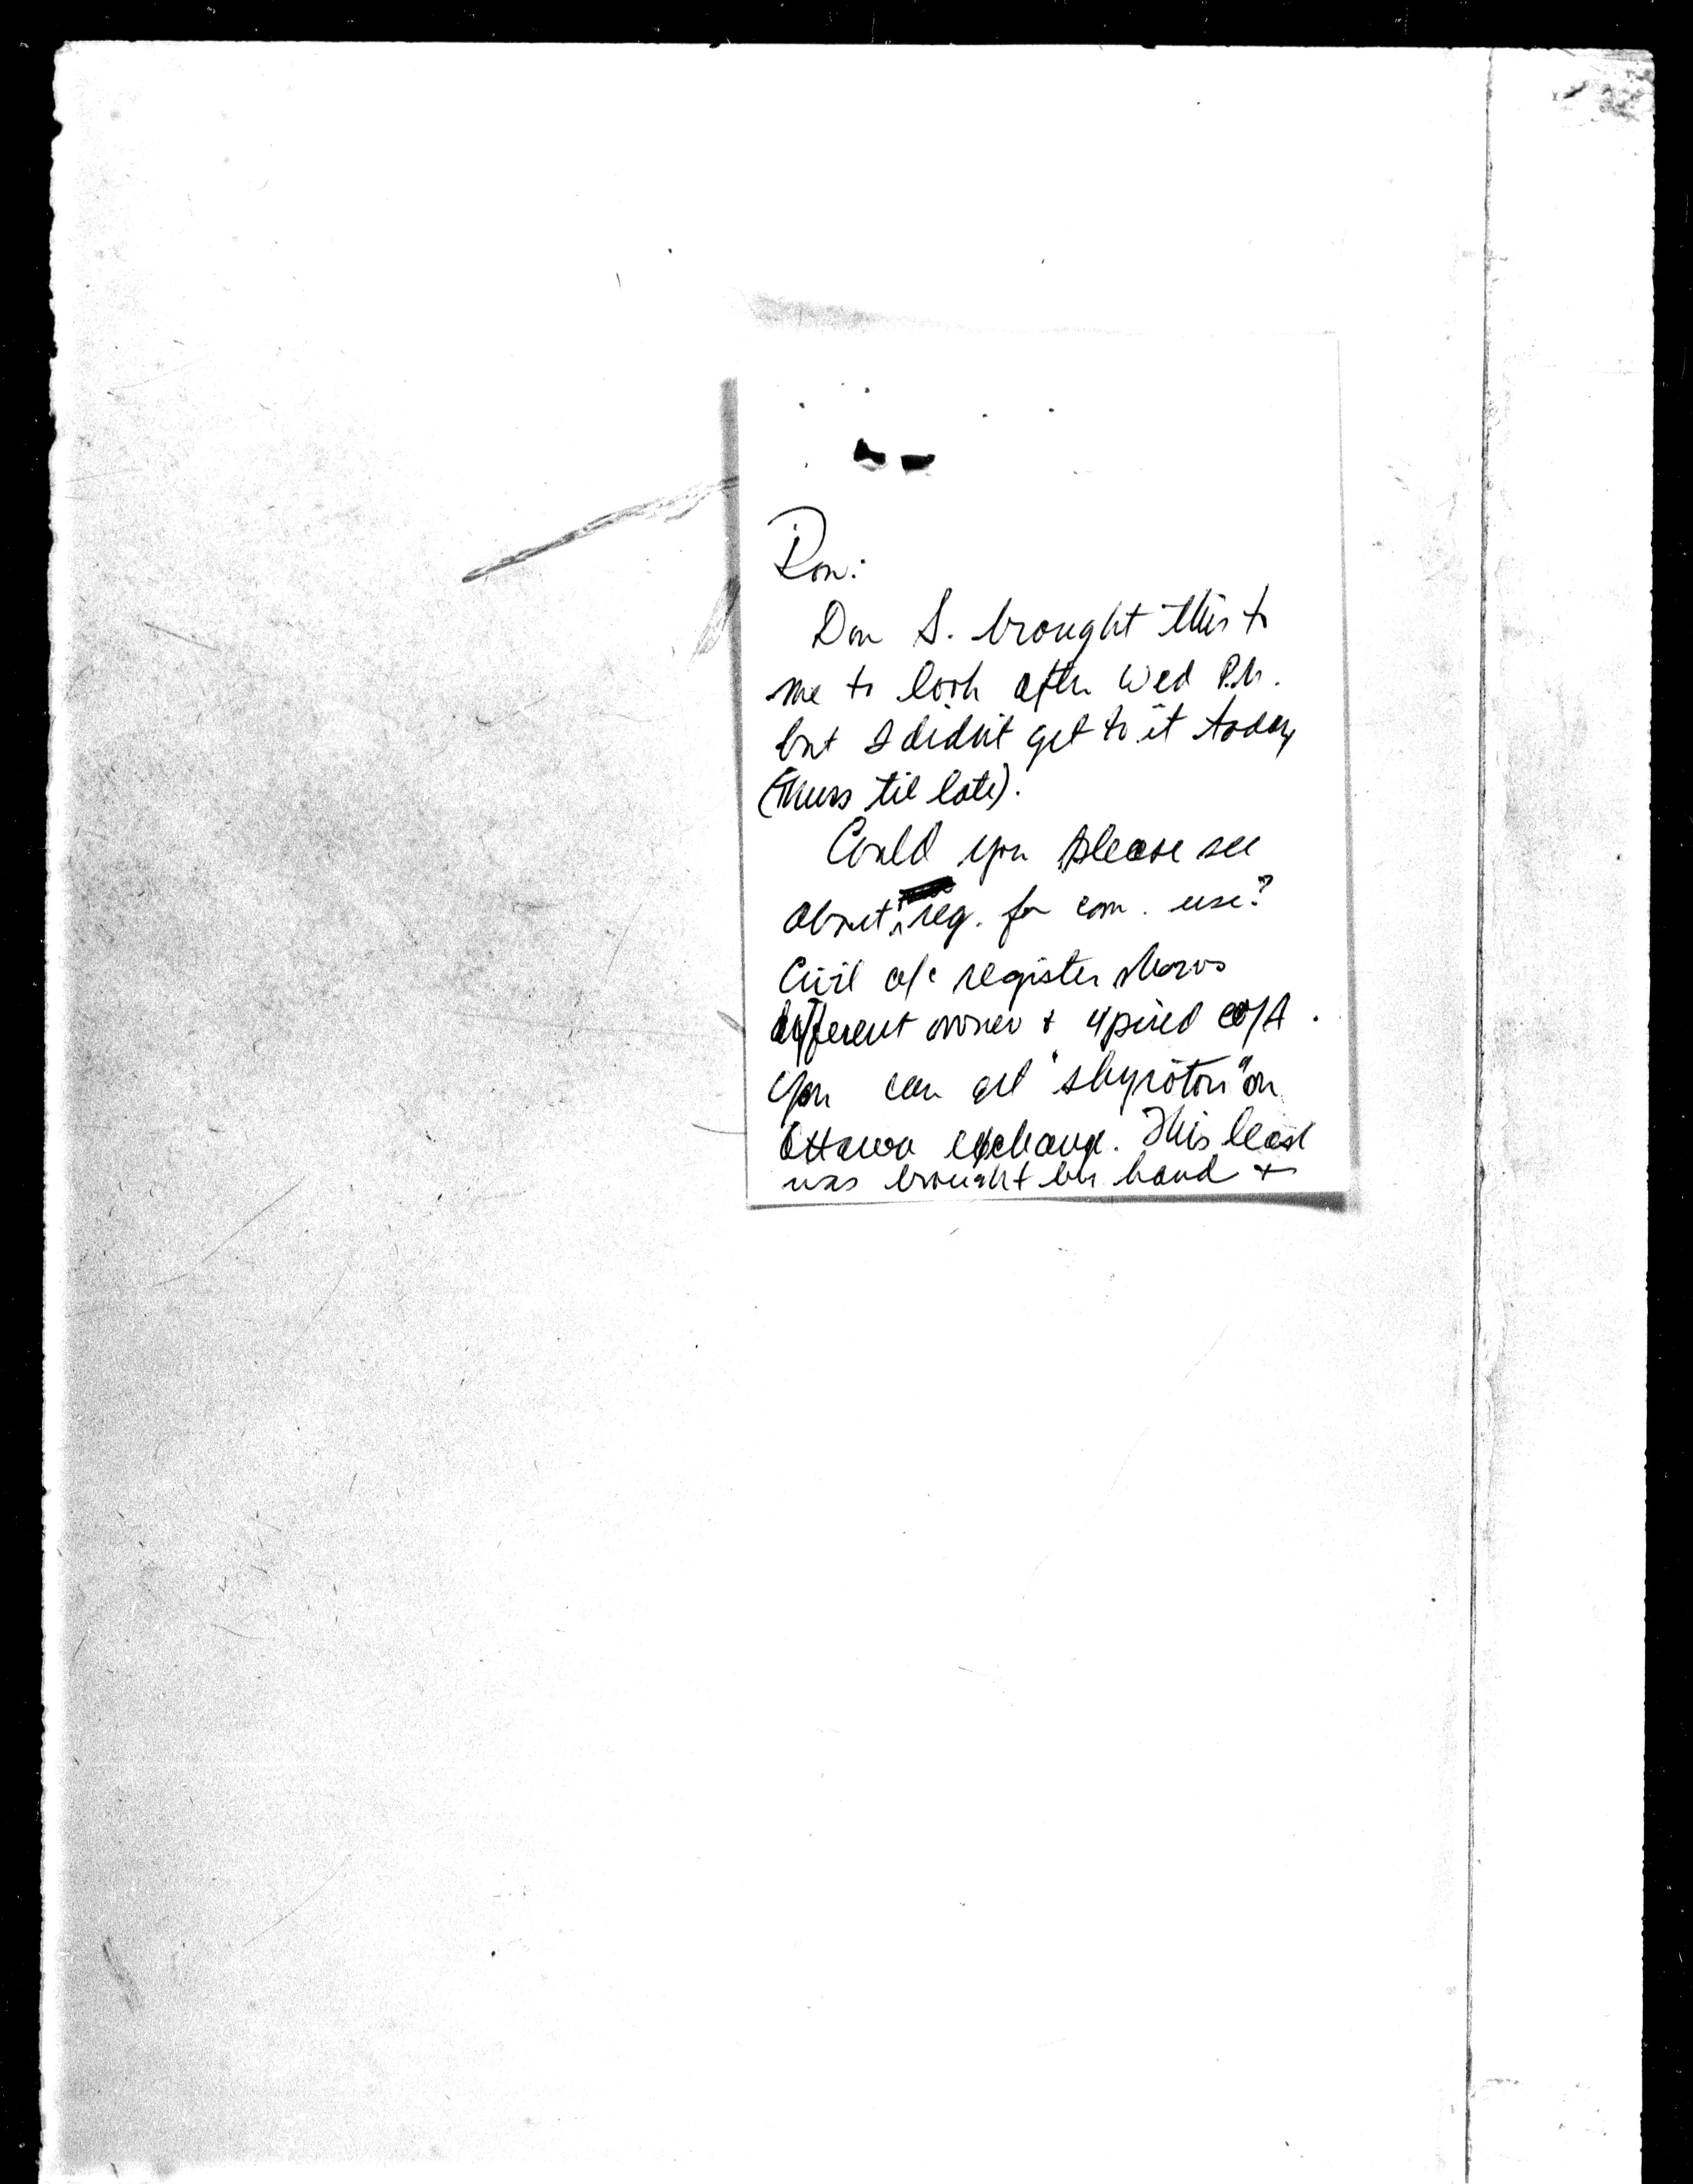 Ron:
Don S. brought this to
me to look after Wed P.M.
but I didn't get to it today
(Thurs til late).
Could you please see
about reg. for com. use?
Civil a/c register shows
different owner & xpired C of A.
You can get "skyrotors" on
Ottawa exchange. This lease
was brought by hand +